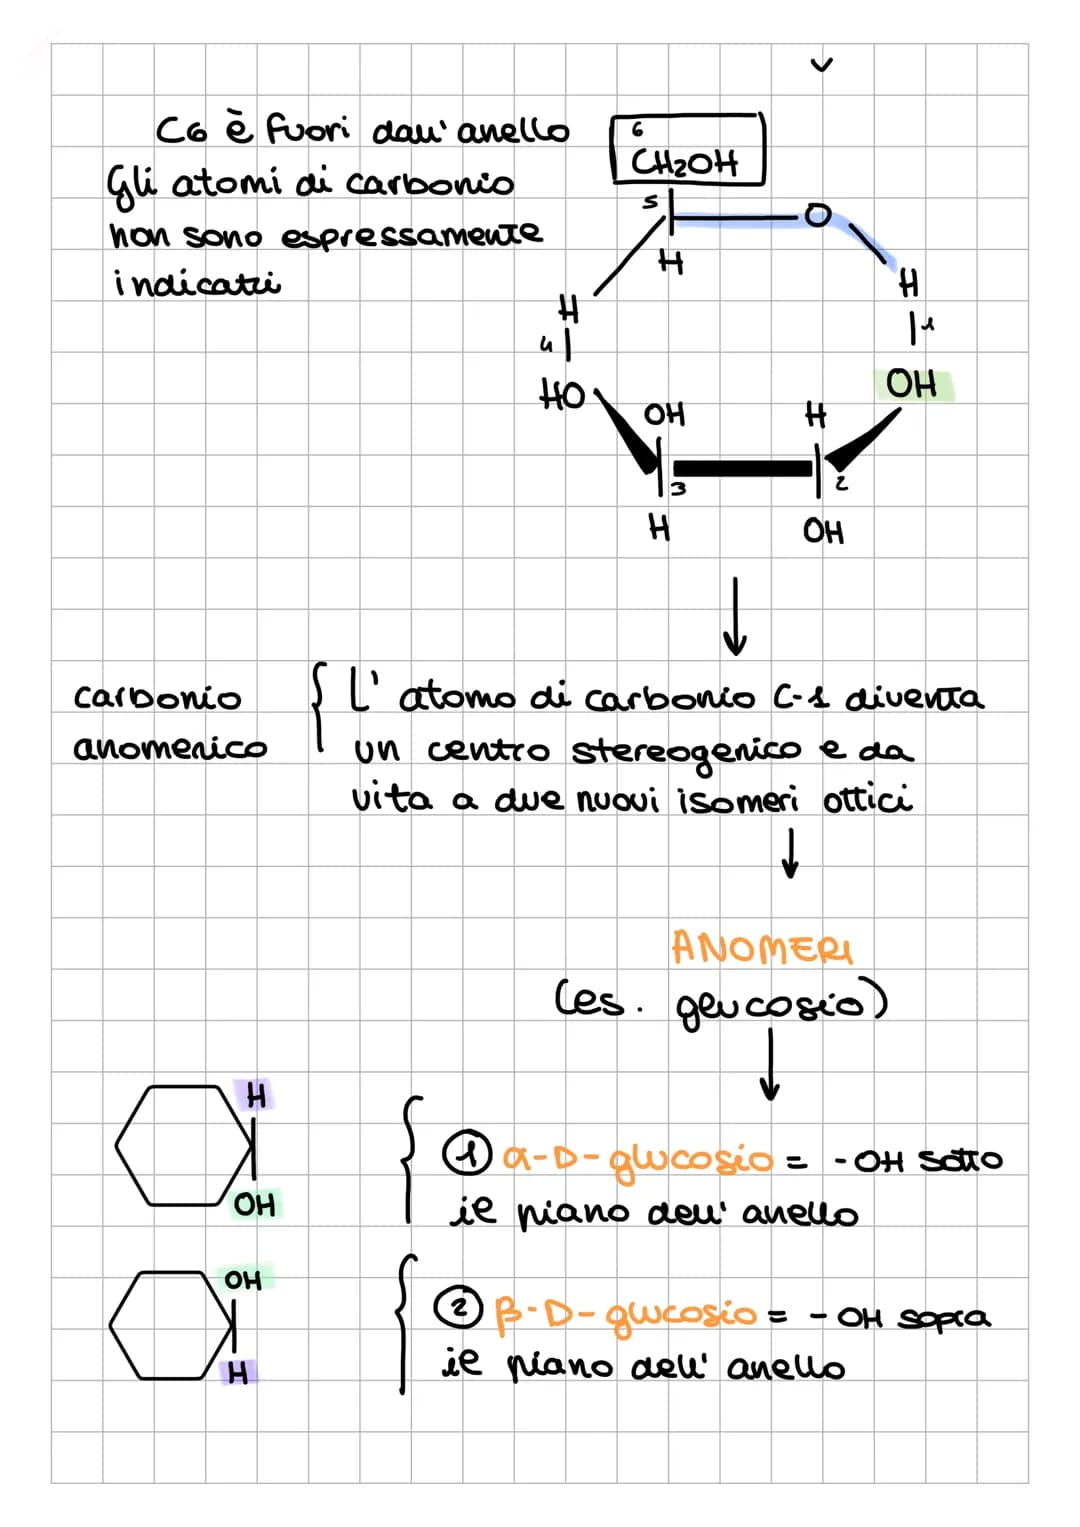 C6 è fuori dall'anello
Gli atomi di carbonio
non sono espressamente
indicati
6
CH₂OH
5
O
H
H
H
4
1
HO
OH
OH
H
3
2
H
OH
carbonio
anomerico
L'atomo di carbonio C-1 diventa
un centro stereogenico e da
vita a due nuovi isomeri ottici
ANOMERI
(es. glucosio)
H
OH
① α-D-glucosio = -OH sotto
il piano dell'anello
OH
H
② β-D-glucosio = -OH sopra
il piano dell'anello